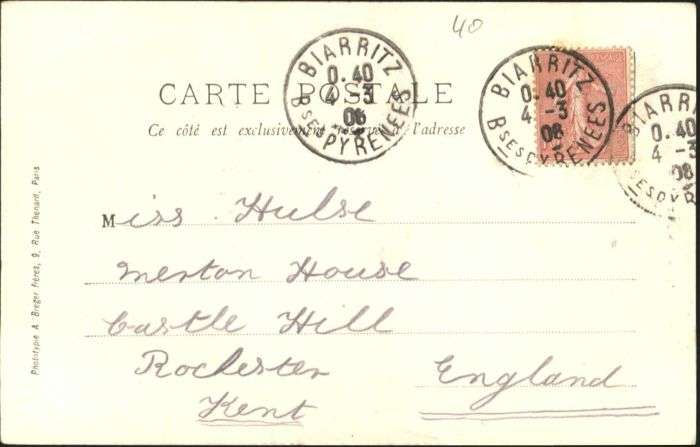 40
BIARRITZ
0.40
4 -3
06
BSES PYRENEES
BIARRITZ
0.40
4 -3
06
BSES PYRENEES
BIARR
0.40
4 -3
06
BSES PYR
CARTE POSTALE
Ce côté est exclusivement réservé à l'adresse
Miss Hulse
Merton House
Castle Hill
Rochester
England
Kent
Phototypie A. Breger Frères, 9, Rue Thenard, Paris